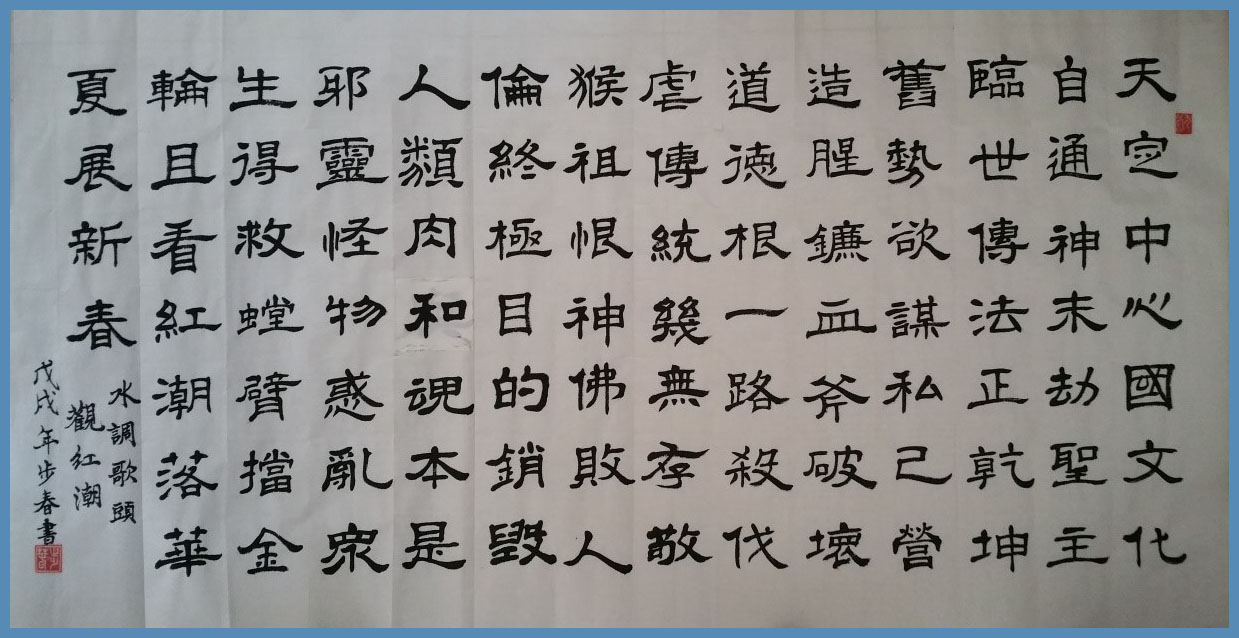 天定中心國文化
自通神末劫聖主
臨世傳法正乾坤
舊勢欲謀私己營
造腥鐮血斧破壞
道德根一路殺伐
虐傳統幾無存敬
猴祖恨神佛敗人
倫終極目的銷毀
人類肉和魂本是
邪靈怪物惑亂眾
生得救螳臂擋金
輪且看紅潮落華
夏展新春
水調歌頭
觀紅潮
戊戌年步春書